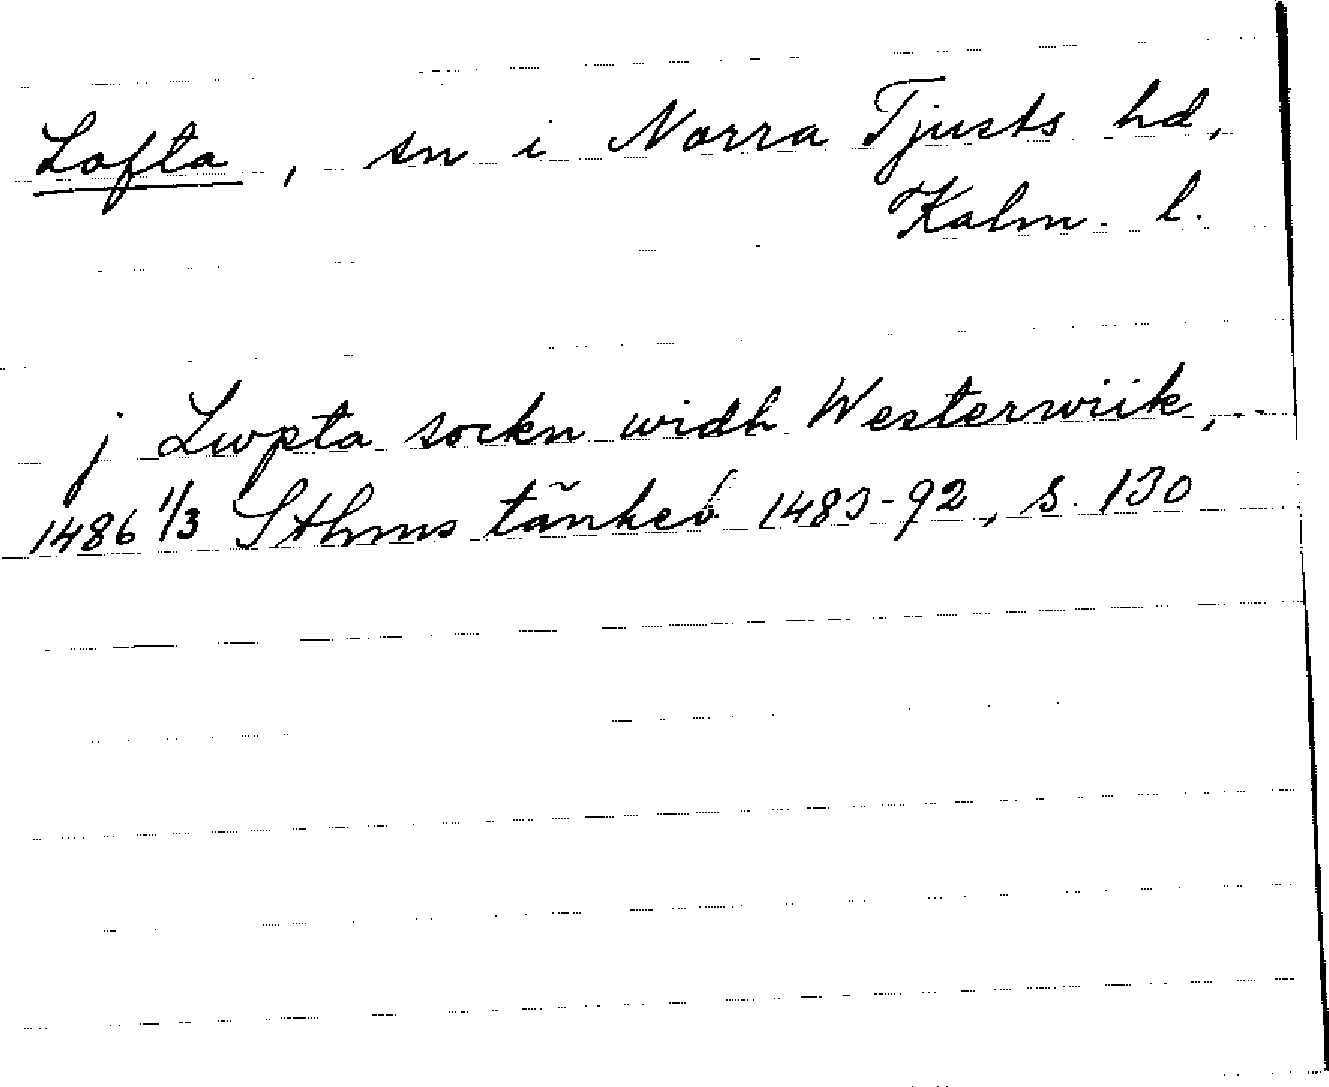 Lofta, sn i Norra Tjusts hd,
Kalm. l.
j Lwpta sockn widh Westerwiik, ..
1486 1/3 Sthms tänkeb 1483-92, s. 130